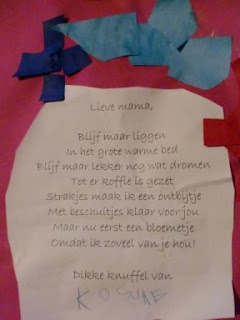 Lieve mama,
Blijf maar liggen
In het grote warme bed
Blijf maar lekker nog wat dromen
Tot er koffie is gezet
Strakjes maak ik een ontbijtje
Met beschuitjes klaar voor jou
Maar nu eerst een bloemetje
Omdat ik zoveel van je hou!
Dikke knuffel van
KOSUKE